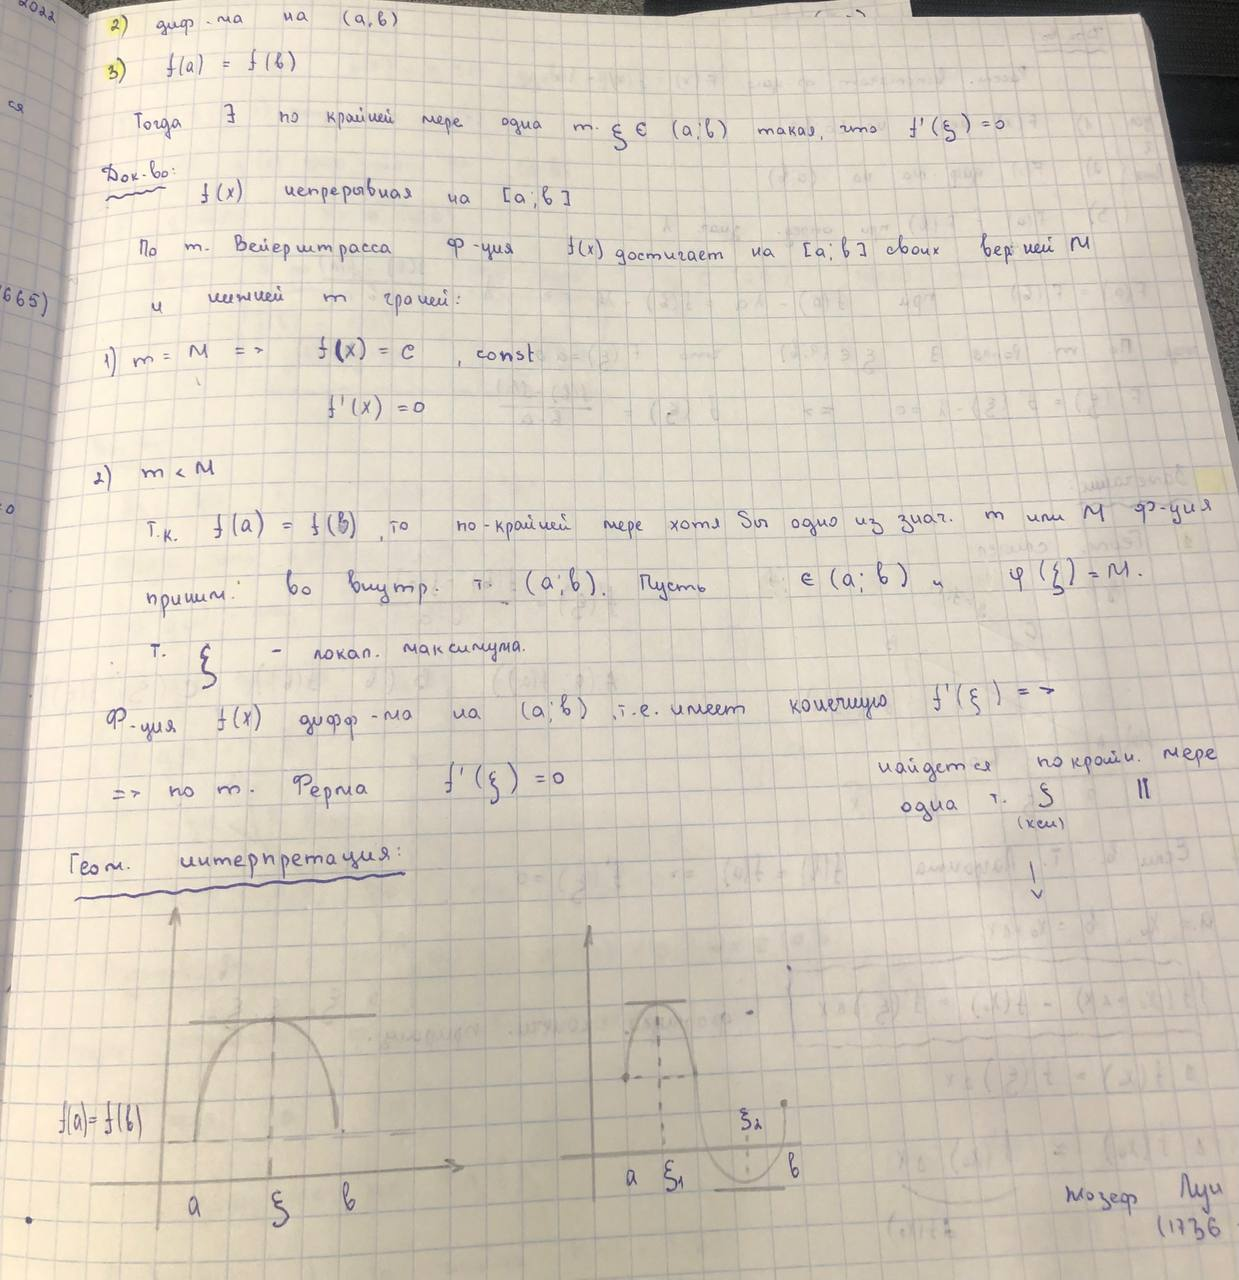 2022
2) диф-ма на (a,b)
3) f(a) = f(b)
ся
Тогда ∃ по крайней мере одна т. ξ ∈ (a;b) такая, что f'(ξ)=0
Док-во:
f(x) непрерывная на [a;b]
По т. Вейерштрасса ф-ция f(x) достигает на [a;b] своих верхней M
665)
и нижней m граней:
1) m = M => f(x) = C , const
f'(x) =0
2) m < M
Т.к. f(a) = f(b), то по-крайней мере хотя бы одно из знач. m или M ф-ция
приним. во внутр. т. (a;b). Пусть ∈ (a;b) и φ(ξ)=M.
т. ξ - локал. максимума.
Ф-ция f(x) дифф-ма на (a;b), т.е. имеет конечную f'(ξ) =>
=> по т. Ферма f'(ξ)=0
найдется по крайн. мере
одна т. ξ
(кси)
Геом. интерпретация:
f(a)=f(b)
a ξ b
ξ2
a ξ1 b
Жозеф Луи
(1736